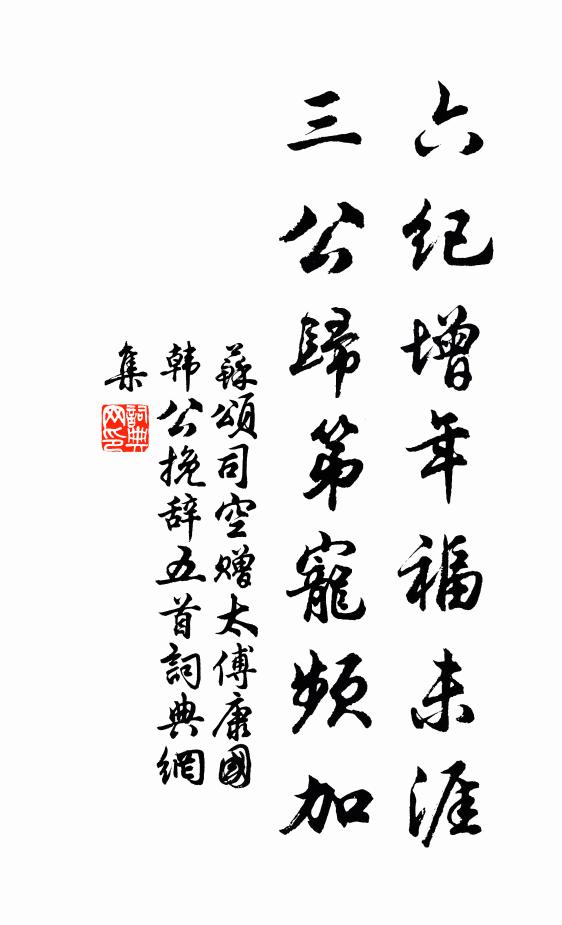 六紀增年福未涯
三公歸第寵頻加
蘇頌司空赠太傅康國
韩公挽辞五首詞典網
集
詞典
网印